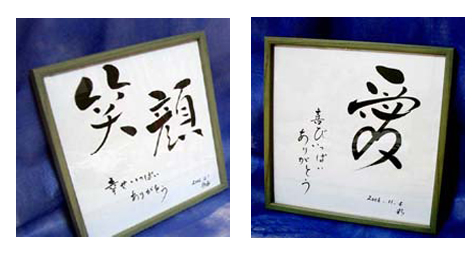 笑顔
幸せいっぱい
ありがとう
愛
喜びいっぱい
ありがとう
2006.11.6